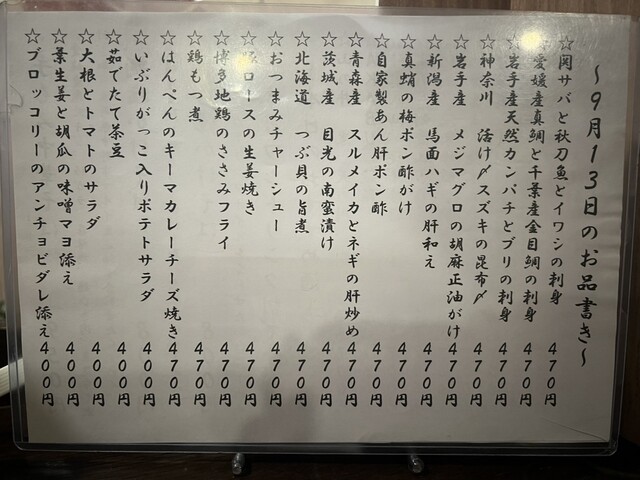 ～9月13日のお品書き～
☆関サバと秋刀魚とイワシの刺身 470円
☆愛媛産真鯛と千葉産金目鯛の刺身 470円
☆岩手産天然カンパチとブリの刺身 470円
☆神奈川 活け〆スズキの昆布〆 470円
☆岩手産 メジマグロの胡麻正油がけ 470円
☆新潟産 馬面ハギの肝和え 470円
☆真蛸の梅ポン酢がけ 470円
☆自家製あん肝ポン酢 470円
☆青森産 スルメイカとネギの肝炒め 470円
☆茨城産 目光の南蛮漬け 470円
☆北海道 つぶ貝の旨煮 470円
☆おつまみチャーシュー 470円
☆豚ロースの生姜焼き 470円
☆博多地鶏のささみフライ 470円
☆鶏もつ煮 470円
☆はんぺんのキーマカレーチーズ焼き 470円
☆いぶりがっこ入りポテトサラダ 400円
☆茹でたて茶豆 400円
☆大根とトマトのサラダ 400円
☆葉生姜と胡瓜の味噌マヨ添え 400円
☆ブロッコリーのアンチョビダレ添え 400円